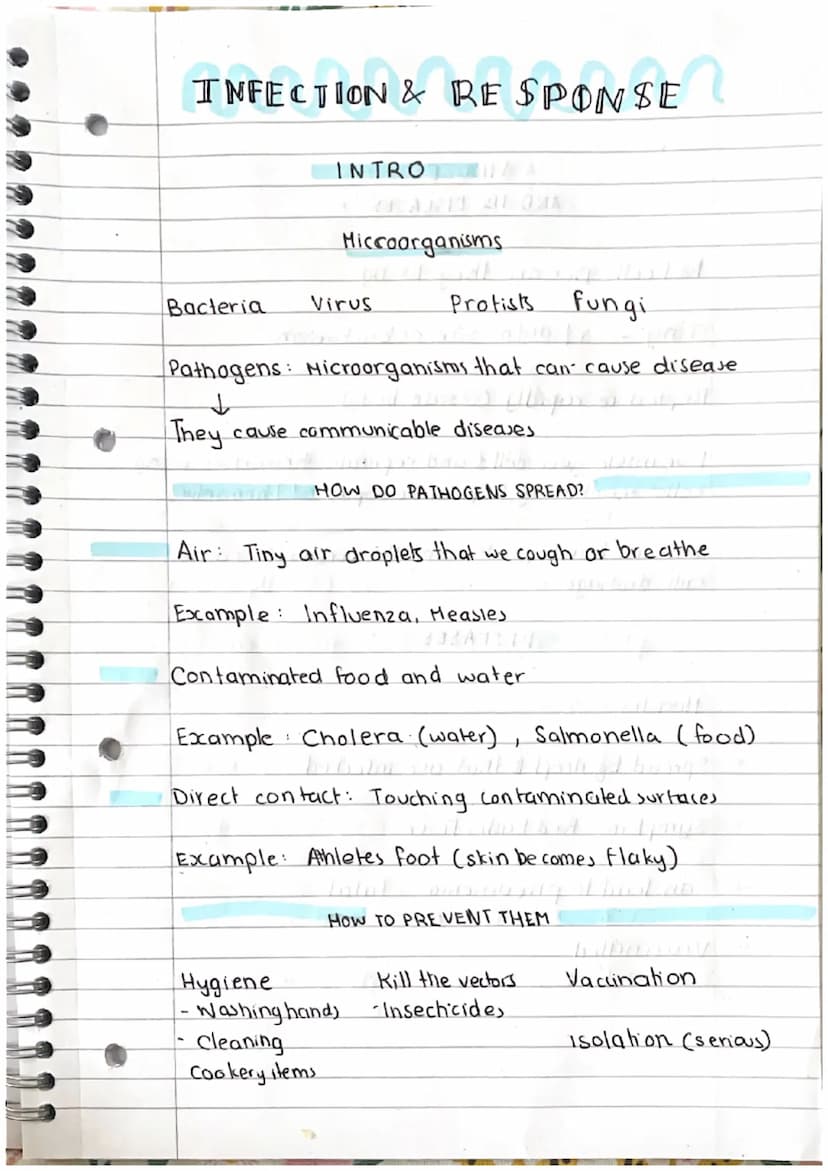 INFECTION & RESPONSE
INTRO
Microorganisms
Bacteria Virus Protists fungi
Pathogens: Microorganisms that can cause disease
↓
They cause communicable diseases
HOW DO PATHOGENS SPREAD?
Air: Tiny air droplets that we cough or breathe
Example: Influenza, Measles
Contaminated food and water
Example: Cholera (water), Salmonella (food)
Direct contact: Touching contaminated surfaces
Example: Athletes foot (skin becomes flaky)
HOW TO PREVENT THEM
Hygiene Kill the vectors Vaccination
- Washing hands - Insecticides
- Cleaning Isolation (serious)
Cookery items